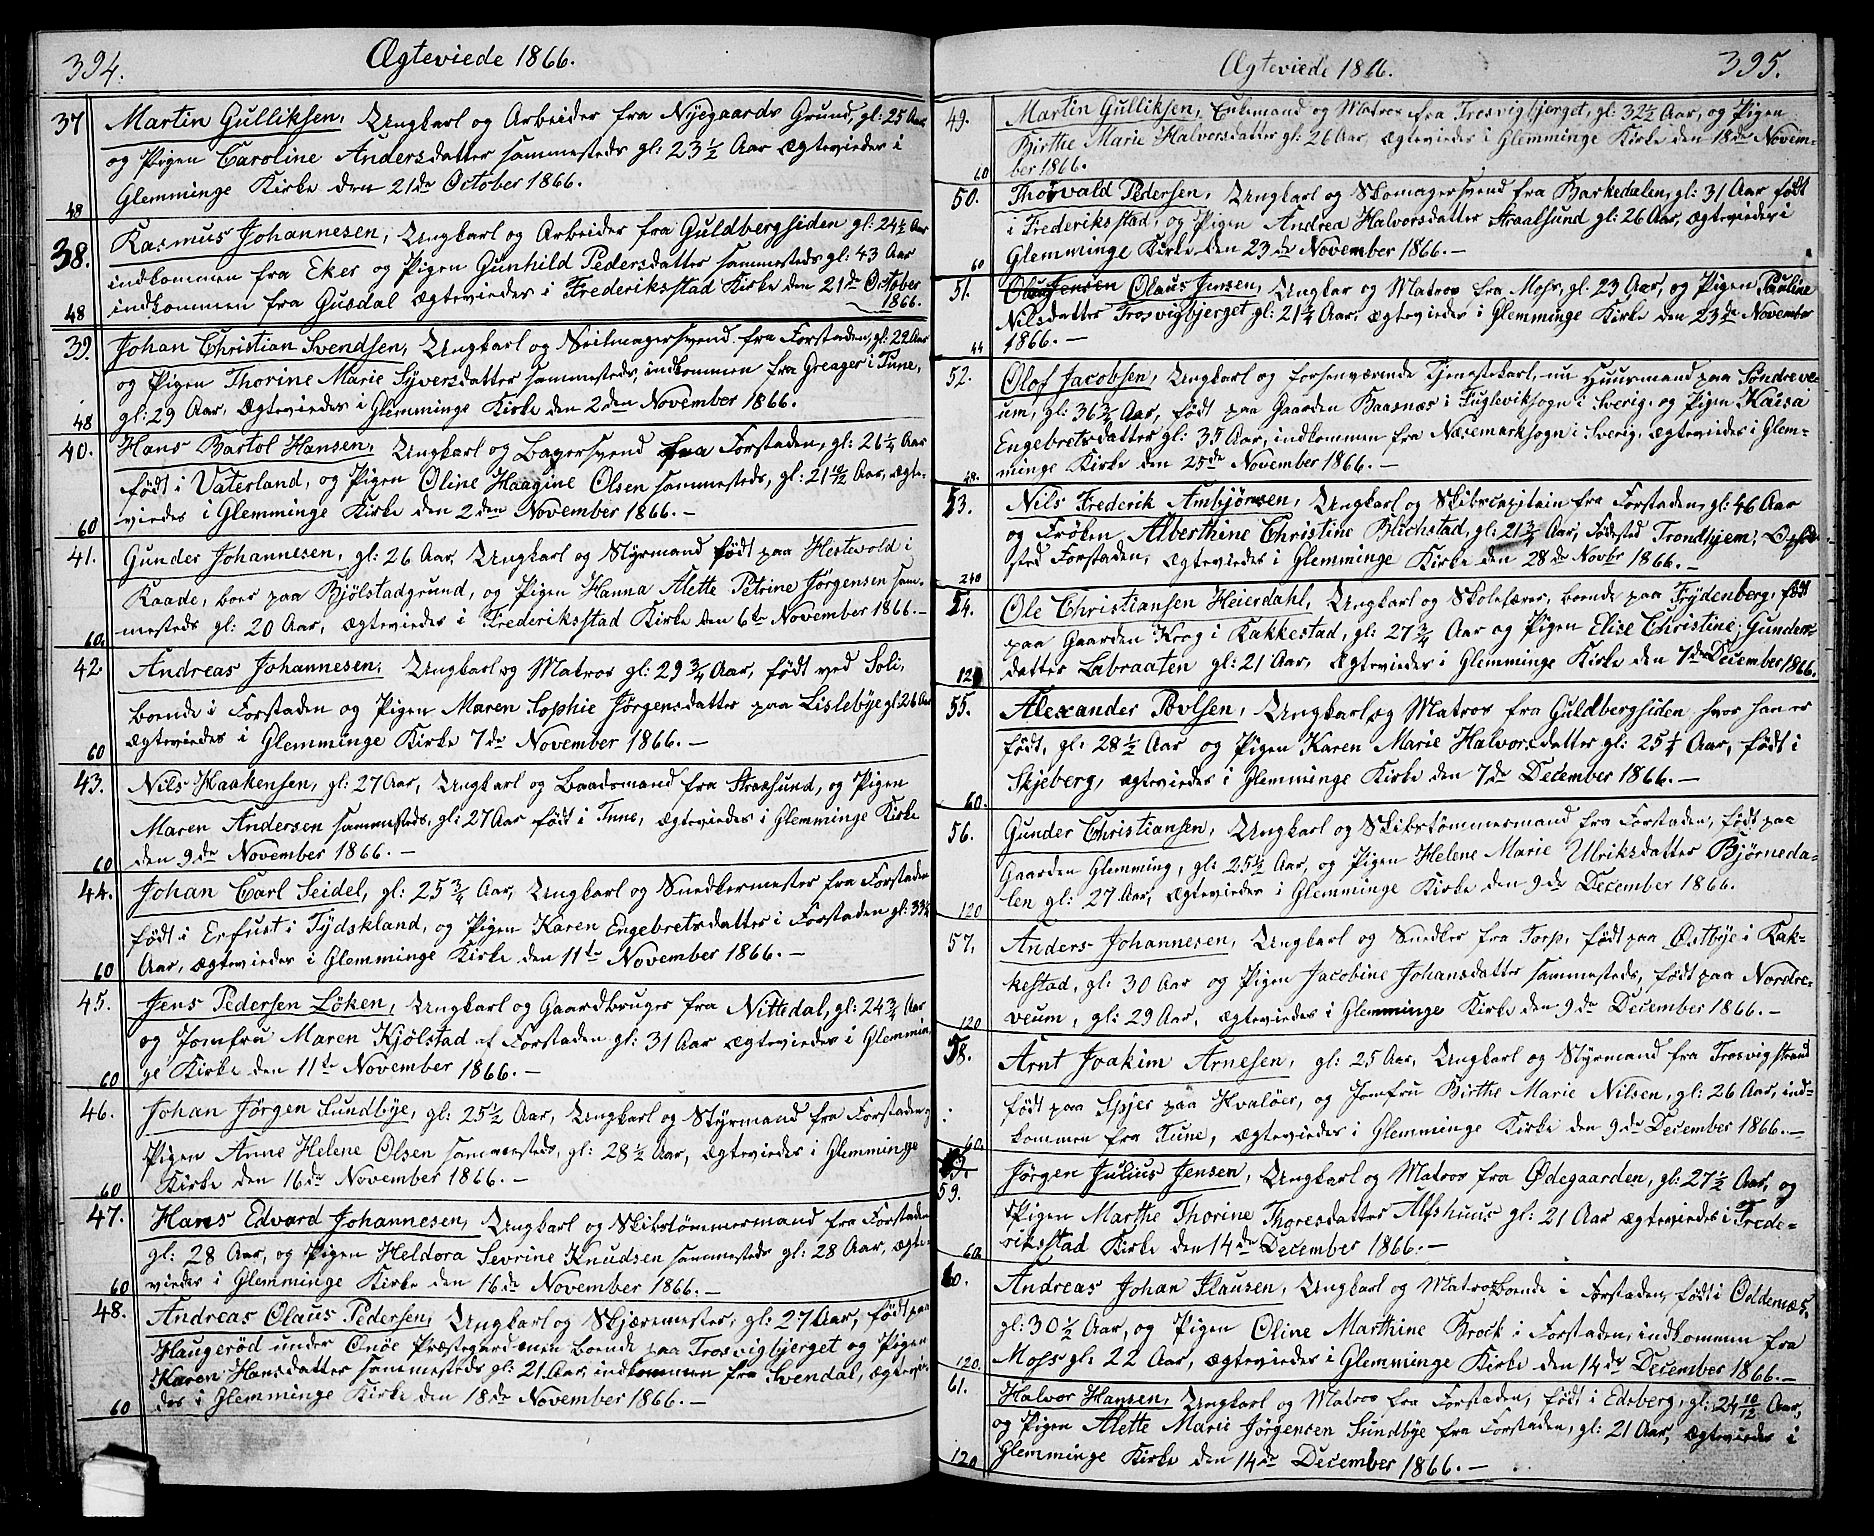 394.
Ægteviede 1866.
37 Martin Gulliksen, Ungkarl og Arbeider fra Nyegaards Grund, gl: 25 Aar
og Pigen Caroline Andersdatter sammesteds gl: 23 1/2 Aar Ægtevieder i
48 Glemminge Kirke den 21de October 1866.
38. Rasmus Johannesen, Ungkarl og Arbeider fra Guldbergsiden gl: 24 1/2 Aar
indkommen fra Eker og Pigen Gunhild Pedersdatter sammesteds gl: 43 Aar
48 indkommen fra Gusdal Ægtevieder i Frederiksstad Kirke den 21de October
1866.
39. Johan Christian Svendsen, Ungkarl og Seilmagersvend fra Forstaden, gl: 29 Aar
og Pigen Thorine Marie Syversdatter sammesteds, indkommen fra Greager i Tune,
48 gl: 29 Aar, Ægtevieder i Glemminge Kirke den 2den November 1866.
40. Hans Bartol Hansen, Ungkarl og Bagersvend fra Forstaden, gl: 26 1/4 Aar
født i Vaterland, og Pigen Oline Haagine Olsen sammesteds, gl: 21 10/12 Aar, Ægte-
60 vieder i Glemminge Kirke den 2den November 1866. —
41. Gunder Johannesen, gl: 26 Aar, Ungkarl og Styrmand født paa Hestevold i
Raade, boer paa Bjölstadgrund, og Pigen Hanna Alette Petrine Jørgensen sam-
60. mesteds gl: 20 Aar, Ægtevieder i Frederiksstad Kirke den 6te November 1866. —
42 Andreas Johannesen, Ungkarl og Matros gl: 29 3/4 Aar, født ved Soli,
boende i Forstaden og Pigen Maren Sophie Jørgensdatter paa Lislebye gl: 26 Aar
60 Ægtevieder i Glemminge Kirke 7de November 1866. —
43. Nils Haakensen, gl: 27 Aar, Ungkarl og Baadsmand fra Straasund, og Pigen
Maren Andersen sammesteds, gl: 27 Aar født i Tune, Ægtevieder i Glemminge Kirke
60 den 9de November 1866. —
44. Johan Carl Seidel, gl: 25 3/4 Aar, Ungkarl og Snedkermester fra Forstaden
født i Erfust i Tydskland, og Pigen Karen Engebretsdatter i Forstaden gl: 33 1/4
60 Aar, Ægtevieder i Glemminge Kirke den 11te November 1866. —
45. Jens Pedersen Løken, Ungkarl og Gaardbruger fra Nittedal, gl: 24 3/4 Aar
og Jomfru Maren Kjölstad af Forstaden gl: 31 Aar Ægtevieder i Glemmin-
60 ge Kirke den 11te November 1866. —
46. Johan Jörgen Sundbye, gl: 25 1/2 Aar, Ungkarl og Styrmand fra Forstaden, og
Pigen Anne Helene Olsen sammesteds, gl: 28 1/2 Aar, Ægtevieder i Glemminge
60 Kirke den 16de November 1866. —
47. Hans Edvard Johannesen, Ungkarl og Skibstömmermand fra Forstaden
gl: 28 Aar, og Pigen Heldora Sevrine Knudsen sammesteds gl: 28 Aar, Ægte-
60 vieder i Glemminge Kirke den 16de November 1866. —
48. Andreas Olaus Pedersen, Ungkarl og Skjæremester, gl: 27 Aar, født paa
Haugeröd under Onöe Præstegard men boende paa Trosvigbjerget og Pigen
Karen Hansdatter sammesteds gl: 21 Aar, indkommen fra Svendal, Ægtevie-
60 des i Glemminge Kirke den 18de November 1866. —
Ægteviede 1866.
395.
49. Martin Gulliksen, Enkemand og Matros fra Trosvigbjerget, gl: 32 1/2 Aar, og Pigen
Birthe Marie Halvorsdatter gl: 26 Aar, Ægtevieder i Glemminge Kirke den 18de Novem-
60 ber 1866.
50. Thorvald Pedersen, Ungkarl og Skomagersvend fra Barkedalen, gl: 31 Aar født
i Frederiksstad, og Pigen Andrea Halvorsdatter Straalsund gl: 26 Aar, Ægtevieder i
60 Glemminge Kirke den 23de November 1866. —
51. Olaus Jensen, Ungkar og Matros fra Moss, gl: 23 Aar, og Pigen Pauline
Nilsdatter Trosvigbjerget gl: 21 1/4 Aar, Ægtevieder i Glemminge Kirke den 23de November
44 1866. —
52. Olof Jacobsen, Ungkarl og forhenværende Tjenestekarl, nu Huusmand paa Söndreve-
um, gl: 36 3/4 Aar, født paa Gaarden Baasnæs i Fuglevik sogn i Sverig, og Pigen Kaisa
Engebretsdatter gl: 35 Aar, indkommen fra Næsemark sogn i Sverig, Ægtevieder i Glem-
48. minge Kirke den 25de November 1866. —
53. Nils Frederik Ambjörnsen, Ungkarl og Skibscapitain fra Forstaden, gl: 46 Aar
og Fröken Alberthine Christine Blichstad, gl: 21 3/4 Aar, Födested Trondhjem, Ophold-
240 sted Forstaden, Ægtevieder i Glemminge Kirke den 28de Novbr 1866. —
54. Ole Christiansen Heierdahl, Ungkarl og Skolelærer, boende paa Frydenberg, født
paa Gaarden Krog i Rakkestad, gl: 27 3/4 Aar og Pigen Elise Christine Gunders-
120 datter Labraaten gl: 21 Aar, Ægtevieder i Glemminge Kirke den 7de December 1866.
55. Alexander Povlsen, Ungkarl og Matros fra Guldbergsiden hvor han er
født, gl: 28 1/2 Aar og Pigen Karen Marie Halvorsdatter gl: 25 1/4 Aar, født i
60. Skjeberg, Ægtevieder i Glemminge Kirke den 7de December 1866. —
56. Gunder Christiansen, Ungkarl og Skibstömmermand fra Forstaden, født paa
Gaarden Glemming, gl: 25 1/2 Aar, og Pigen Helene Marie Ulriksdatter Bjørneda-
120 len gl: 27 Aar, Ægtevieder i Glemminge Kirke den 9de December 1866.
57. Anders Johannesen, Ungkarl og Snedker fra Torp, født paa Östbye i Rak-
kestad, gl: 30 Aar og Pigen Jacobine Johansdatter sammesteds, født paa Nordre-
120 veum, gl: 29 Aar, Ægtevieder i Glemminge Kirke den 9de December 1866. —
58. Arnt Joakim Arnesen, gl: 25 Aar, Ungkarl og Styrmand fra Trosvigstrand
født paa Spjer paa Hvaløer, og Jomfru Birthe Marie Nilsen, gl: 26 Aar, ind-
60. kommen fra Tune, Ægtevieder i Glemminge Kirke den 9de December 1866. —
59. Jörgen Julius Jensen, Ungkarl og Matros fra Ødegaarden, gl: 27 1/2 Aar, og
Pigen Marthe Thorine Thoresdatter Alfshuus gl: 21 Aar Ægtevieder i Frede-
60. riksstad Kirke den 14de December 1866. —
60. Andreas Johan Klausen, Ungkarl og Matros boende i Forstaden, født i Oddenæs,
gl: 30 1/2 Aar, og Pigen Oline Marthine Brock i Forstaden, indkommen fra
120. Moss gl: 22 Aar, Ægtevieder i Glemminge Kirke den 14de December 1866. —
61. Halvor Hansen, Ungkarl og Matros fra Forstaden, født i Edsberg, gl: 24 10/12 Aar,
og Pigen Alette Marie Jörgensen Sundbye fra Forstaden, gl: 21 Aar, Ægtevieder i
120 Glemminge Kirke den 14de December 1866. —